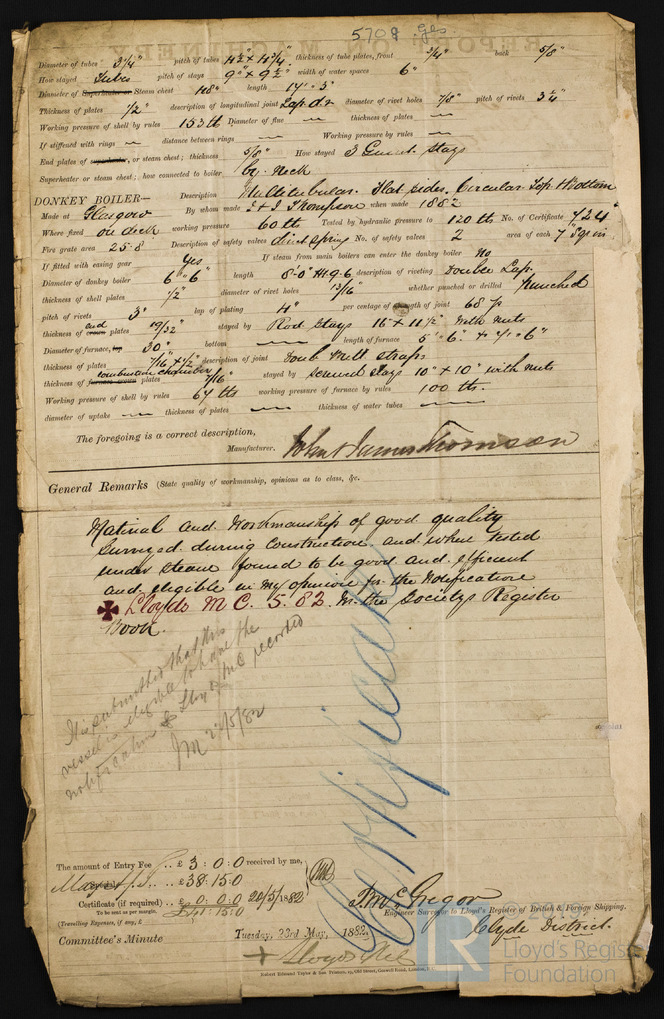 5708 Gls
Diameter of tubes 3 1/4" pitch of tubes 4 1/2 x 4 3/4 thickness of tube plates, front 3/4" back 5/8"
How stayed Tubes pitch of stays 9" x 9 1/2" width of water spaces 6"
Diameter of Superheater or Steam chest 48" length 17' 3"
Thickness of plates 1/2" description of longitudinal joint Lap d r diameter of rivet holes 7/8" pitch of rivets 3 1/4"
Working pressure of shell by rules 153 lb Diameter of flue — thickness of plates —
If stiffened with rings — distance between rings — Working pressure by rules —
End plates of superheater, or steam chest; thickness 5/8" How stayed 3 Gusset Stays
Superheater or steam chest; how connected to boiler by neck
DONKEY BOILER— Description Multitubular. Flat sides, Circular Top & Bottom
Made at Glasgow By whom made J & J Thompson when made 1882
Where fixed on deck working pressure 60 lb Tested by hydraulic pressure to 120 lb No. of Certificate 724
Fire grate area 25.8 Description of safety valves direct spring No. of safety valves 2 area of each 7" sq in
If fitted with easing gear Yes If steam from main boilers can enter the donkey boiler No
Diameter of donkey boiler 6' 6" length 8-0 H 9.6 description of riveting Double Lap.
thickness of shell plates 1/2" diameter of rivet holes 13/16" whether punched or drilled punched
pitch of rivets 3" lap of plating 4" per centage of strength of joint 68 p
thickness of crown end plates 19/32" stayed by Rod Stays 16 x 11 1/2 with nuts
Diameter of furnace, top 30" bottom — length of furnace 5' 6"
thickness of plates 7/16 x 1/2" description of joint doub butt straps
thickness of furnace crown combustion chamber plates 7/16" stayed by screwed stays 10" x 10" with nuts
Working pressure of shell by rules 64 lbs working pressure of furnace by rules 100 lbs.
diameter of uptake — thickness of plates — thickness of water tubes —
The foregoing is a correct description,
Manufacturer. John & James Thomson
General Remarks (State quality of workmanship, opinions as to class, &c.
Material and Workmanship of good quality
Surveyed during Construction and when tested
under steam found to be good and efficient
and eligible in my opinion for the Notification
✠ Lloyds M C. 5. 82. in the Societys Register
Book.
It is submitted that this
vessel is eligible to have the
notification ✠ Lloyds MC recorded
JM 22/5/82
Certificate
The amount of Entry Fee .. £ 3 : 0 : 0 received by me,
.. £ 38 : 15 : 0
Certificate (if required) .. £ 0 : 0 : 0 20/5/1882
To be sent as per margin. £41 : 15 : 0
(Travelling Expenses, if any, £
J. McGregor
Engineer Surveyor to Lloyd's Register of British & Foreign Shipping.
Clyde District.
Committee's Minute Tuesday, 23rd May, 1882.
+ Lloyds MC
Robert Edmund Taylor & Son Printers, 19, Old Street, Goswell Road, London, E.C.
LR
Lloyd's Register
Foundation